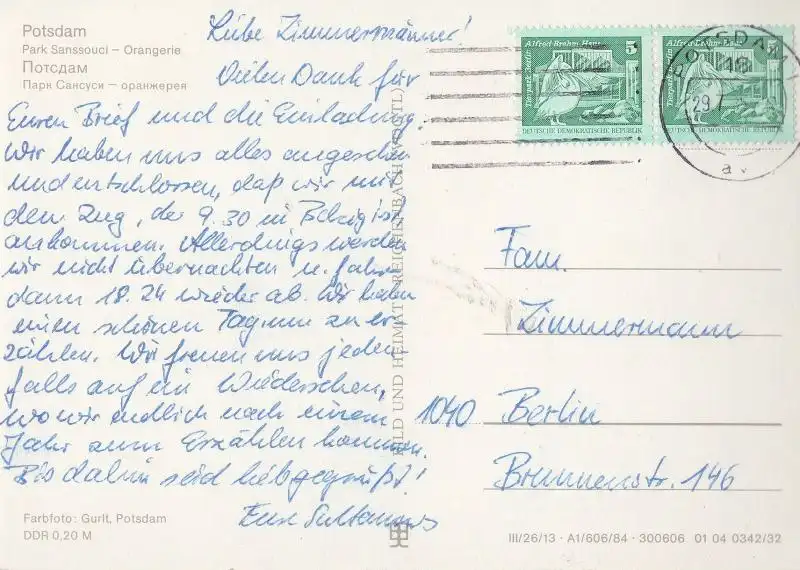 Potsdam
Park Sanssouci – Orangerie
Потсдам
Парк Сансуси – оранжерея
Liebe Zimmermänner!
Vielen Dank für
Euren Brief und die Einladung.
Wir haben uns alles angesehen
und entschlossen, daß wir mit
dem Zug, der 9.30 in Belzig ist
ankommen. Allerdings werden
wir nicht übernachten u. fahren
dann 18.24 wieder ab. Wir haben
einen schönen Tag um zu er-
zählen. Wir freuen uns jeden-
falls auf ein Wiedersehen,
wo wir endlich nach einem
Jahr zum Erzählen kommen.
Bis dahin seid lieb gegrüßt!
Eure
Farbfoto: Gurlt, Potsdam
DDR 0,20 M
BILD UND HEIMAT REICHENBACH (VOGTL)
Alfred-Brehm-Haus
5
Tierpark Berlin
DEUTSCHE DEMOKRATISCHE REPUBLIK
Alfred-Brehm-Haus
Tierpark Berlin
DEUTSCHE DEMOKRATISCHE REPUBLIK
POTSDAM 1
29.7
18
Fam.
Zimmermann
1040 Berlin
Brunnenstr. 146
III/26/13 · A1/606/84 · 300606 01 04 0342/32